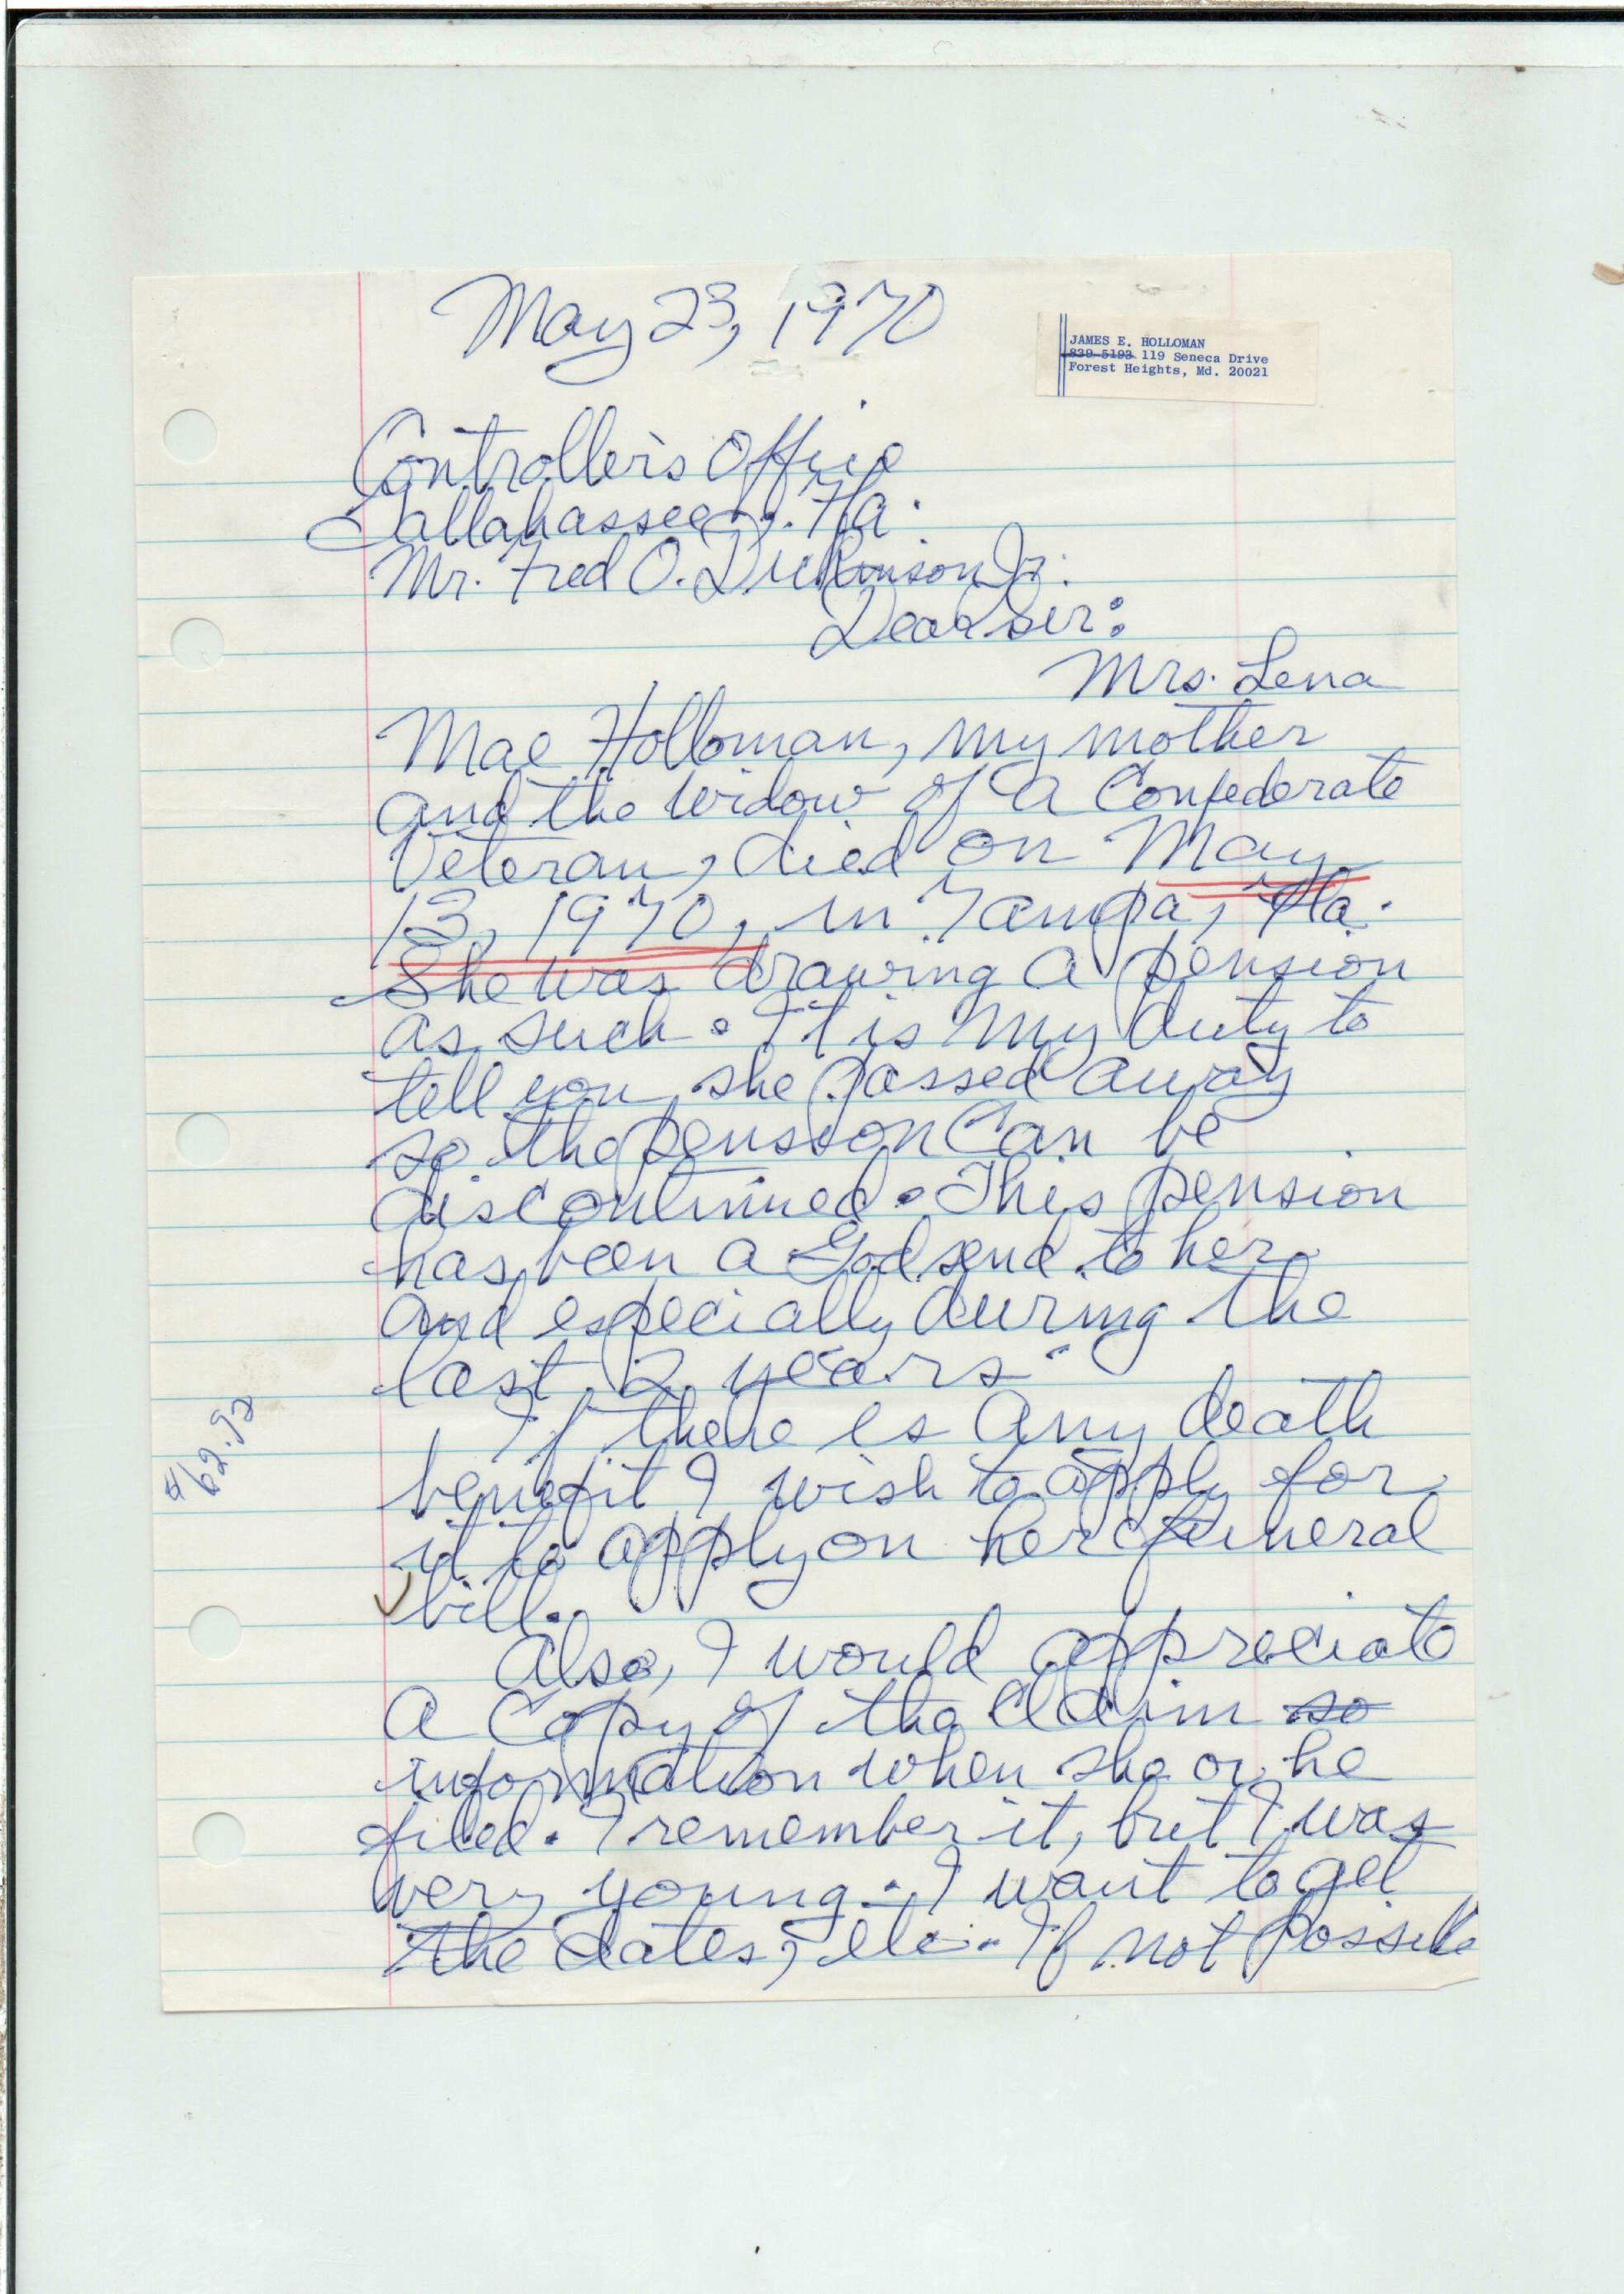 May 23, 1970
JAMES E. HOLLOMAN
839-5193 119 Seneca Drive
Forest Heights, Md. 20021
Controller's Office
Tallahassee, Fla.
Mr. Fred O. Dickinson Jr.
Dear Sir:
Mrs. Lena
Mae Holloman, my mother
and the widow of a Confederate
Veteran, died on May
13, 1970, in Tampa, Fla.
She was drawing a pension
as such. It is my duty to
tell you she passed away
so the pension can be
discontinued. This pension
has been a Godsend to her
and especially during the
last 2 years.
If there is any death
benefit I wish to apply for
it to apply on her funeral
bill.
Also, I would appreciate
a copy of the claim so
information when she or he
filed. I remember it, but I was
very young. I want to get
the dates, etc. If not possible